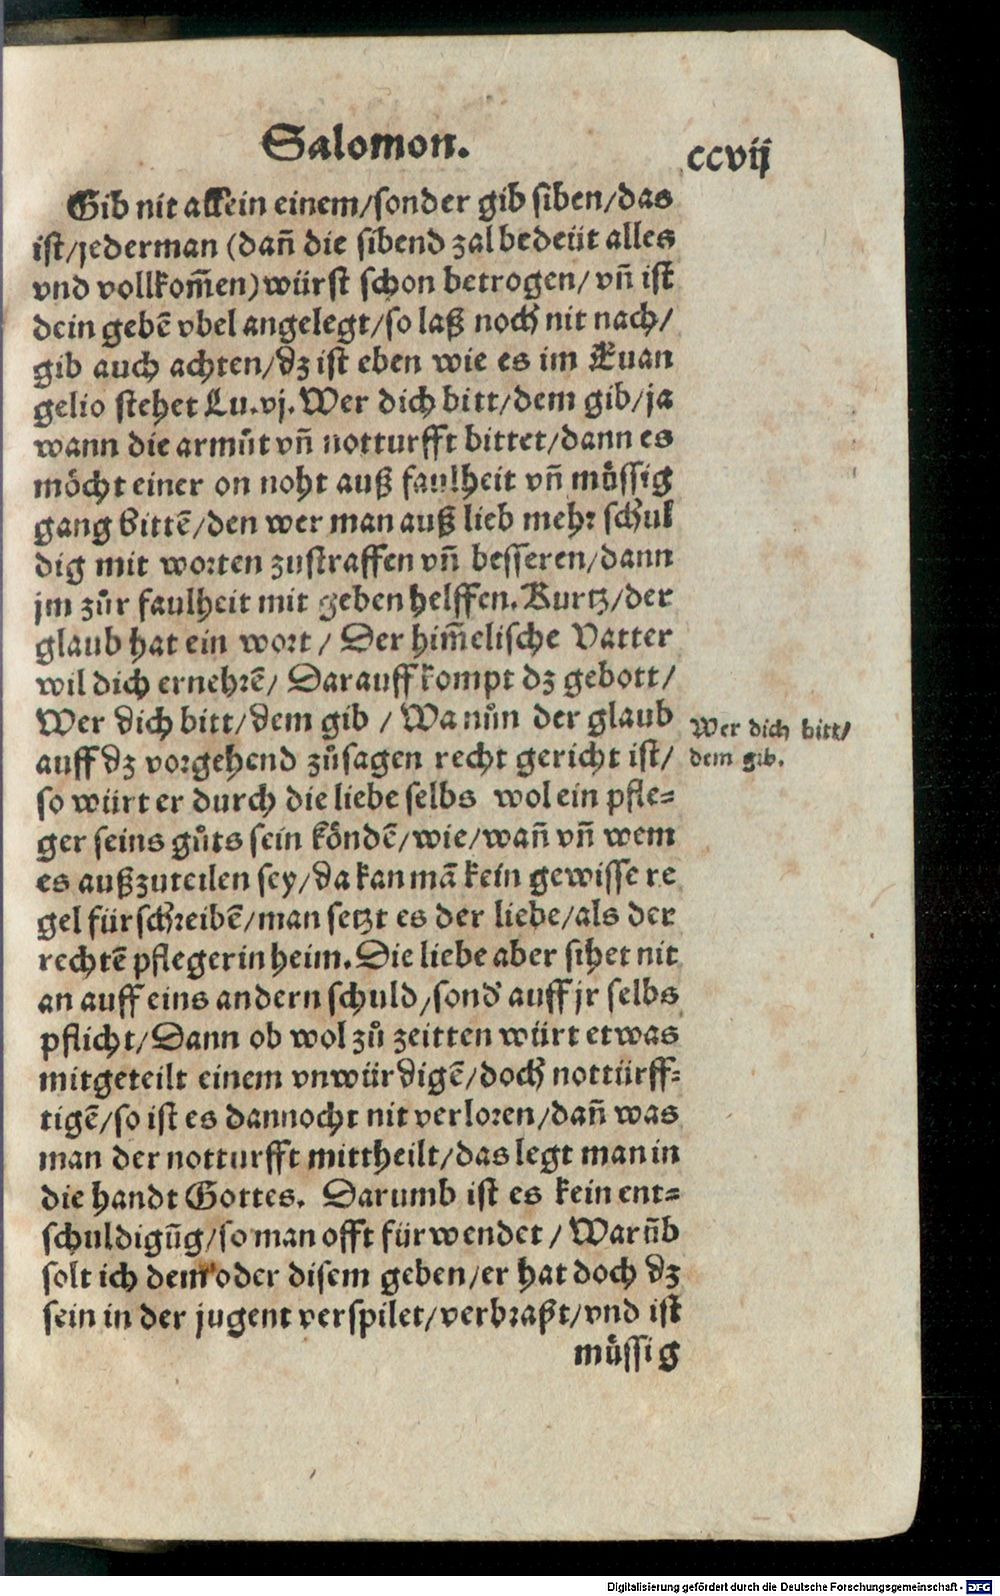 Salomon.
ccvij
Gib nit allein einem/sonder gib siben/das
ist/jederman (dañ die sibend zal bedeüt alles
vnd vollkom̃en) würst schon betrogen/ vñ ist
dein gebẽ vbel angelegt/so laß noch nit nach/
gib auch achten/dz ist eben wie es im Euan
gelio stehet Lu.vj. Wer dich bitt/dem gib/ja
wann die armůt vñ notturfft bittet/dann es
möcht einer on noht auß faulheit vñ müssig
gang bittẽ/den wer man auß lieb mehr schul
dig mit worten zustraffen vñ besseren/dann
jm zůr faulheit mit geben helffen. Kurtz/der
glaub hat ein wort / Der him̃elische Vatter
wil dich ernehrẽ/ Darauff kompt dz gebott/
Wer dich bitt/dem gib / Wa nůn der glaub
auff dz vorgehend zůsagen recht gericht ist/
so würt er durch die liebe selbs wol ein pfle=
ger seins gůts sein köndẽ/wie/wañ vñ wem
es außzuteilen sey/da kan mã kein gewisse re
gel fürschreibẽ/man setzt es der liebe/als der
rechtẽ pflegerin heim. Die liebe aber sihet nit
an auff eins andern schuld/sond' auff jr selbs
pflicht/Dann ob wol zů zeitten würt etwas
mitgeteilt einem vnwürdigẽ/doch nottürff=
tigẽ/so ist es dannocht nit verloren/dañ was
man der notturfft mittheilt/das legt man in
die handt Gottes. Darumb ist es kein ent=
schuldigũg/so man offt fürwendet / Warũb
solt ich dem oder disem geben/er hat doch dz
sein in der jugent verspilet/verbraßt/vnd ist
müssig
Wer dich bitt/
dem gib.
Digitalisierung gefördert durch die Deutsche Forschungsgemeinschaft - DFG